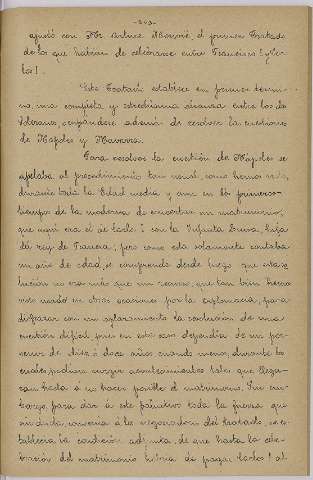 ajustó con Mr. Arturo, el primer Tratado
de los que habían de celebrarse entre Francisco I y Car-
los I.
Este Tratado establece en primer térmi-
no, una completa y estrechísima alianza entre los dos
soberanos, además de resolver las cuestiones
de Nápoles y Navarra.
Para resolver la cuestión de Nápoles se
apelaba al procedimiento tan usual, como hemos visto,
durante toda la Edad media y aun en los primeros
tiempos de la moderna de concertar un matrimonio,
que aquí era el de Carlos I con la Infanta Luisa, hija
del rey de Francia; pero como esta solamente contaba
un año de edad, se comprende desde luego que esta so-
lución no era más que un recurso, que tan bien hemos
visto usado en otras ocasiones por la diplomacia, para
disfrazar con un aplazamiento la conclusión de una
cuestión difícil pues en este caso dependía de un por-
venir de diez o doce años cuando menos, durante los
cuales podían surgir acontecimientos tales que llega-
ran hasta a no hacer posible el matrimonio. Sin em-
bargo, para dar a este paliativo toda la fuerza que
sin duda, convenía a los negociadores del tratado, se es-
tablecía la condición adjunta de que hasta la cele-
bración del matrimonio habría de pagar Carlos I al